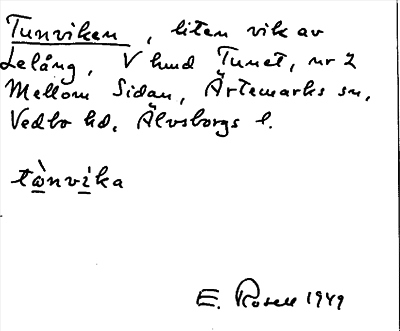 Tunviken, liten vik av
Lelång, V hmd Tunet, nr 2
Mellom Sidan, Ärtemarks sn,
Vedbo hd, Älvsborgs l.
tὼnvika
E. Rosell 1949